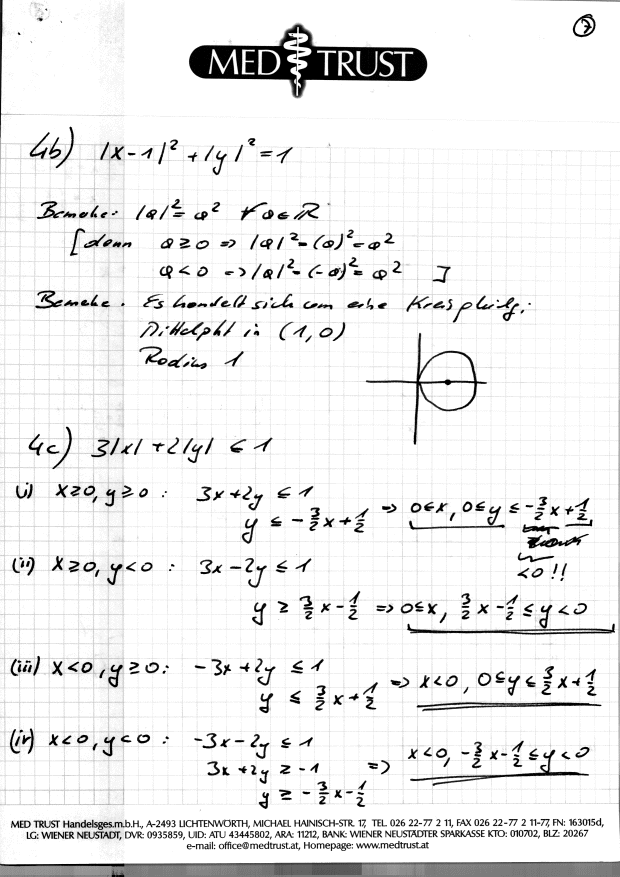 7
MED TRUST
4b) |x-1|² + |y|² = 1
Bemerke: |a|² = a² ∀ a∈ℝ
[denn a≥0 => |a|² = (a)² = a²
a<0 => |a|² = (-a)² = a² ]
Bemerke: Es handelt sich um eine Kreisgleichg;
Mittelpkt in (1,0)
Radius 1
4c) 3|x| + 2|y| ≤ 1
(i) x≥0, y≥0 : 3x+2y ≤ 1
y ≤ -3/2 x + 1/2 => 0≤x, 0≤y ≤ -3/2 x + 1/2
<0 !!
(ii) x≥0, y<0 : 3x-2y ≤ 1
y ≥ 3/2 x - 1/2 => 0≤x, 3/2 x - 1/2 ≤ y < 0
(iii) x<0, y≥0: -3x+2y ≤ 1
y ≤ 3/2 x + 1/2 => x<0, 0≤y≤ 3/2 x + 1/2
(iv) x<0, y<0 : -3x-2y ≤ 1
3x+2y ≥ -1 => x<0, -3/2 x - 1/2 ≤ y < 0
y ≥ -3/2 x - 1/2
MED TRUST Handelsges.m.b.H., A-2493 LICHTENWÖRTH, MICHAEL HAINISCH-STR. 17, TEL. 026 22-77 2 11, FAX 026 22-77 2 11-77, FN: 163015d,
LG: WIENER NEUSTADT, DVR: 0935859, UID: ATU 43445802, ARA: 11212, BANK: WIENER NEUSTÄDTER SPARKASSE KTO: 010702, BLZ: 20267
e-mail: office@medtrust.at, Homepage: www.medtrust.at